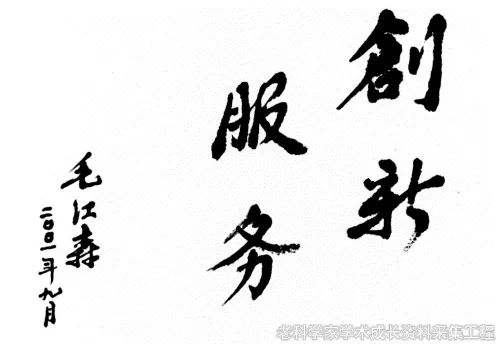 創新
服务
毛江森
二〇〇一年九月
老科学家学术成长资料采集工程